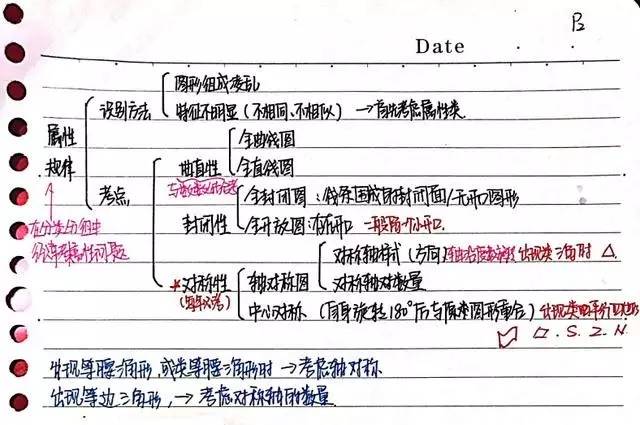 P2
Date
图形组成凌乱
识别方法
特征不明显(不相同、不相似) →首先考虑属性类
属性
规律
全曲线图
曲直性
全直线图
考点
全封闭图:线条围成的封闭面/无开口图形
封闭性
全开放图:有开口 一般留一个小开口.
在分类分组中
经常考属性问题
对称轴样式(方向) 出现类三角时 △
轴对称图
对称轴对数量
*对称性
(每年必考)
中心对称(自身旋转180°后与原来图形重合)出现类平行四边形
▱ . S . Z . N
出现等腰三角形,或类等腰三角形时→考虑轴对称
出现等边三角形,→考虑对称轴的数量